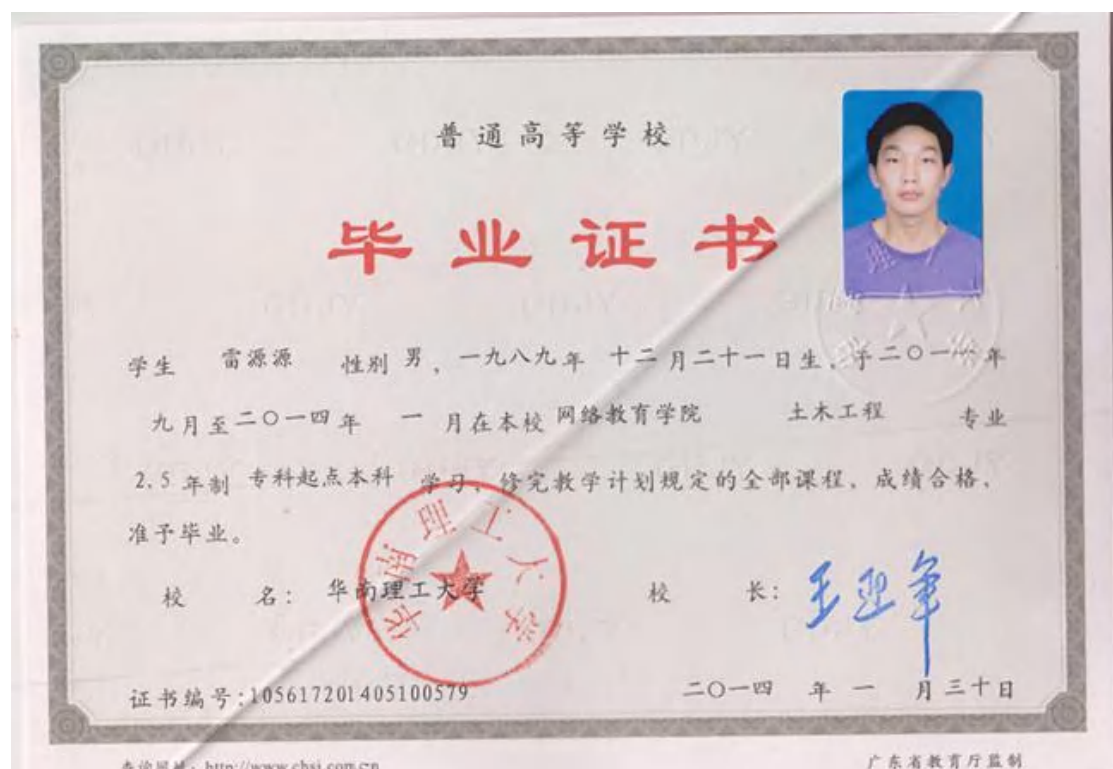 普通高等学校
毕业证书
学生 雷源源 性别 男，一九八九年 十二月二十一日生，于二〇一一年
九月至二〇一四年 一 月在本校 网络教育学院 土木工程 专业
2.5 年制 专科起点本科 学习，修完教学计划规定的全部课程，成绩合格，
准予毕业。
校 名：华南理工大学 校 长：
华南理工大学
证书编号：105617201405100579 二〇一四 年 一 月三十日
查询网址：http://www.chsi.com.cn 广东省教育厅监制